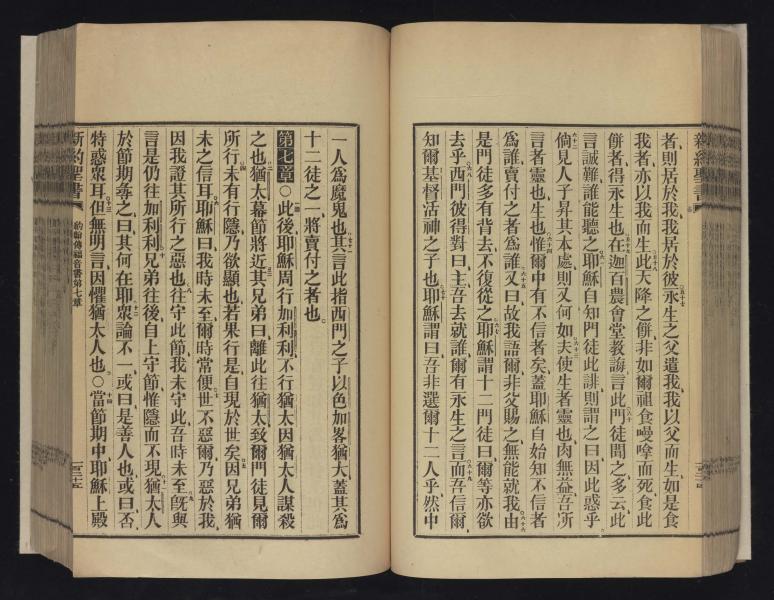 新約聖書
者則居於我我居於彼永生之父遣我我以父而生如是食
我者亦以我而生此天降之餅非如爾祖食嗎嗱而死食此
餅者得永生也在迦百農會堂教誨言此門徒聞之多云此
言誠難誰能聽之耶穌自知門徒此誹則謂之曰因此惑乎
倘見人子昇其本處則又何如夫使生者靈也肉無益吾所
言者靈也生也惟爾中有不信者矣蓋耶穌自始知不信者
為誰賣付之者為誰又曰故我語爾非父賜之無能就我由
是門徒多有背去不復從之耶穌謂十二門徒曰爾等亦欲
去乎西門彼得對曰主吾去就誰爾有永生之言而吾信爾
知爾基督活神之子也耶穌謂曰吾非選爾十二人乎然中
一人為魔鬼也其言此指西門之子以色加畧猶大蓋其為
十二徒之一將賣付之者也
第七章○此後耶穌周行加利利不行猶太因猶太人謀殺
之也猶太幕節將近其兄弟曰離此往猶太致爾門徒見爾
所行未有行隱乃欲顯也若果行是自現於世矣因兄弟猶
未之信耳耶穌曰我時未至爾時常便世不惡爾乃惡於我
因我證其所行之惡也往守此節我未守此吾時未至旣與
言是仍往加利利兄弟往後自上守節惟隱而不現猶太人
於節期尋之曰其何在耶衆論不一或曰是善人也或曰否
特惑衆耳但無明言因懼猶太人也○當節期中耶穌上殿
新約聖書 約翰傳福音書第七章